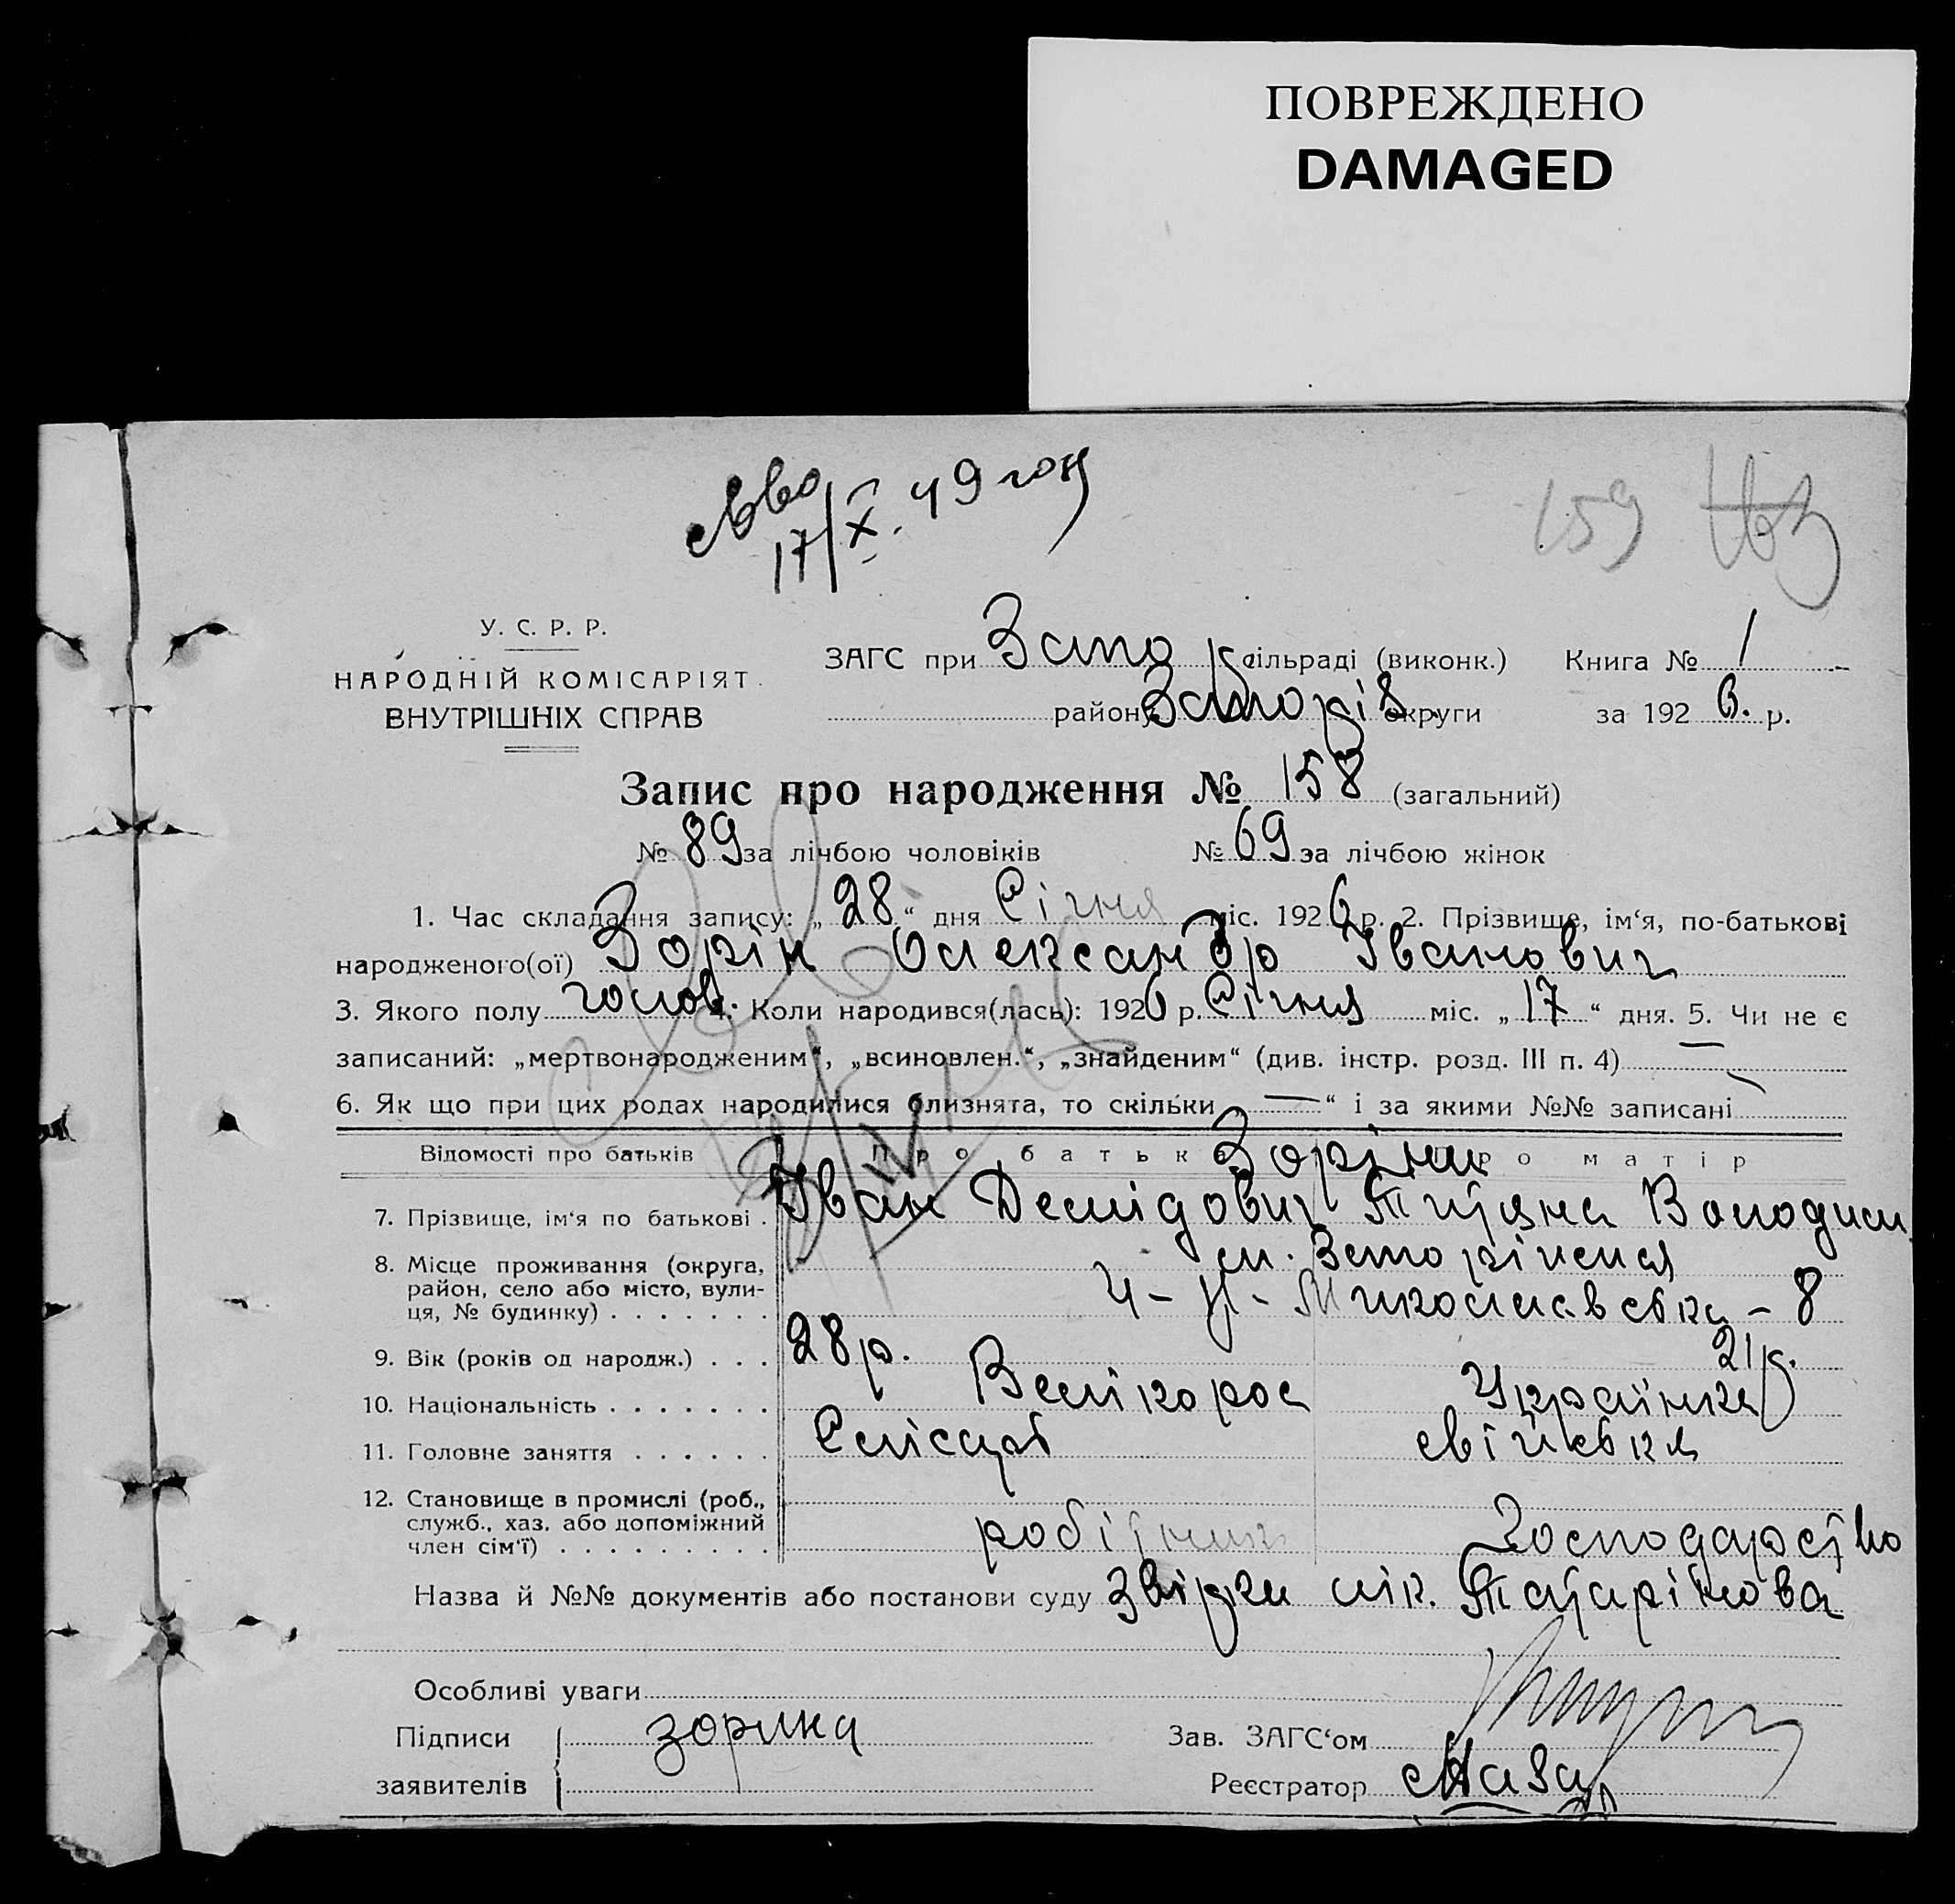 ПОВРЕЖДЕНО
DAMAGED
17/X. 49 год
159
У. С. Р. Р.
НАРОДНІЙ КОМІСАРІЯТ
ВНУТРІШНІХ СПРАВ
ЗАГС при Запо сільраді (виконк.) Книга № 1
району Запоріз. округи за 192 6. р.
Запис про народження № 158 (загальний)
№ 89 за лічбою чоловіків № 69 за лічбою жінок
1. Час складання запису: „ 28 “ дня Січня міс. 192 6 р. 2. Прізвище, ім‘я, по-батькові
народженого(ої) Зорін Олександр Іванович
3. Якого полу чолов. 4. Коли народився(лась): 192 6 р. Січня міс. „ 17 “ дня. 5. Чи не є
записаний: „мертвонародженим“, „всиновлен.“, „знайденим“ (див. інстр. розд. III п. 4) —
6. Як що при цих родах народилися близнята, то скільки „ — “ і за якими №№ записані
Відомості про батьків Про батьк Зоріни про матір
7. Прізвище, ім‘я по батькові . Іван Демідович Титяна Володим
8. Місце проживання (округа,
район, село або місто, вули-
ця, № будинку) . . . . . . . м. Запоріжжя
Миколаавська – 8
9. Вік (років од народж.) . . . 28 р. 21 р.
10. Національність . . . . . . . Велікорос Українка
11. Головне заняття . . . . . . Слісарь свійська
12. Становище в промислі (роб.,
служб., хаз. або допоміжний
член сім‘ї) . . . . . . . . . робітник господарство
Назва й №№ документів або постанови суду Звірки лік. Татарінова
Особливі уваги
Підписи зорина Зав. ЗАГС‘ом
заявителів Реєстратор